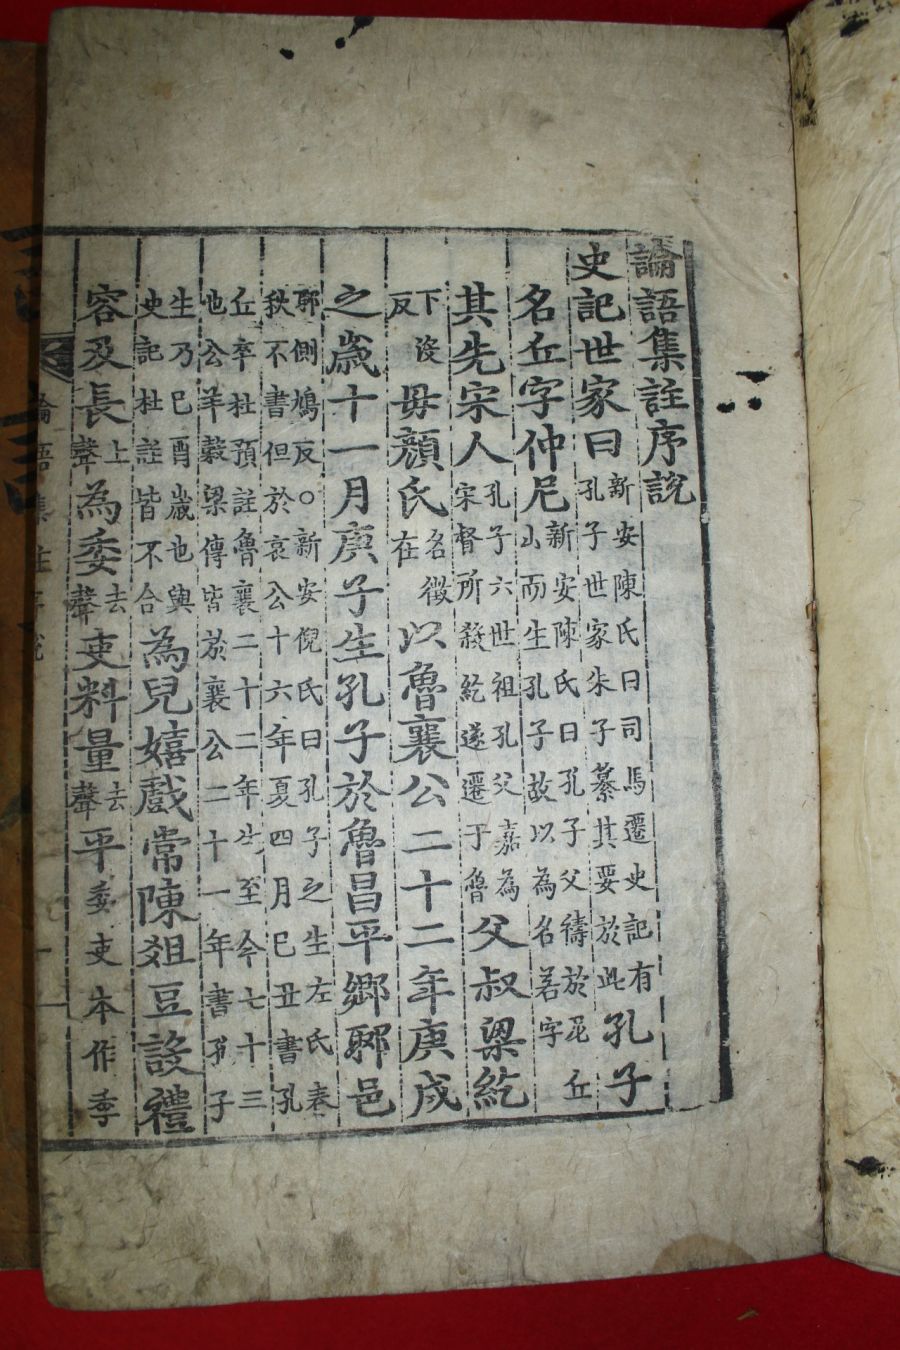 論語集註序說
史記世家曰新安陳氏曰司馬遷史記有孔子世家朱子纂其要於此孔子
名丘字仲尼新安陳氏曰孔子父禱於尼丘山而生孔子故以為名若字
其先宋人孔子六世祖孔父嘉為宋督所殺紇遂遷于魯父叔梁紇
下沒反毋顔氏名徵在以魯襄公二十二年庚戌
之歲十一月庚子生孔子於魯昌平鄉郰邑
郰側鳩反○新安倪氏曰孔子之生左氏春秋不書但於哀公十六年夏四月己丑書孔
丘卒杜預註魯襄二十二年生至今七十三也公羊穀梁傳皆於襄公二十一年書孔子
生乃巳酉歲也與史記杜註皆不合為兒嬉戲常陳俎豆設禮
容及長上聲為委去聲吏料量去聲平委吏本作季
論語集註序說 一